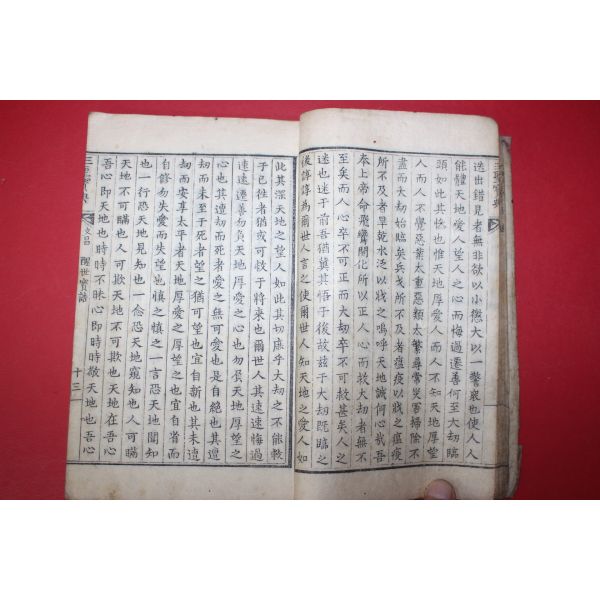 迭出錯見者無非欲以小懲大以一警衆也使人人
能體天地愛人望人之心而悔過遷善何至大劫臨
頭如此其慘也惟天地愛人而人不知天地厚望
人而人不覺惡業太重惡類太繁尋常災害掃除不
盡而大劫始臨矣兵戈所不及者瘟疫以戕之瘟疫
所不及者旱乾水溢以戕之嗚呼天地誠何心哉吾
奉上帝命飛鸞開化所以正人心而救大劫者無不
至矣而人心卒不可正而大劫卒不可救甚矣人之
迷也迷于前吾猶冀其悟于後故玆于大劫旣臨之
後諄諄爲爾世人言之使爾世人知天地之愛人如
此其深天地之望人如此其切庶乎大劫之不能救
于已徃者猶或可救于將來也爾世人其速速悔過
速速遷善勿負天地厚愛之心也勿虽天地厚望之
心也其遭劫而死者愛之無可愛也是自絶也其遭
劫而未至于死者望之猶可望也宜自新也其未遭
劫而安享太平者天地厚愛之厚望之也宜自省而
自修勿失愛而失望也愼之愼之一言恐天地聞知
也一行恐天地見知也一念恐天地窺知也人可欺
天地不可瞞也人可欺天地不可欺也天地在吾心
吾心卽天地也時時不昧心卽時時敬天地也吾心
三聖寶典
文昌
醒世寶誥
十三